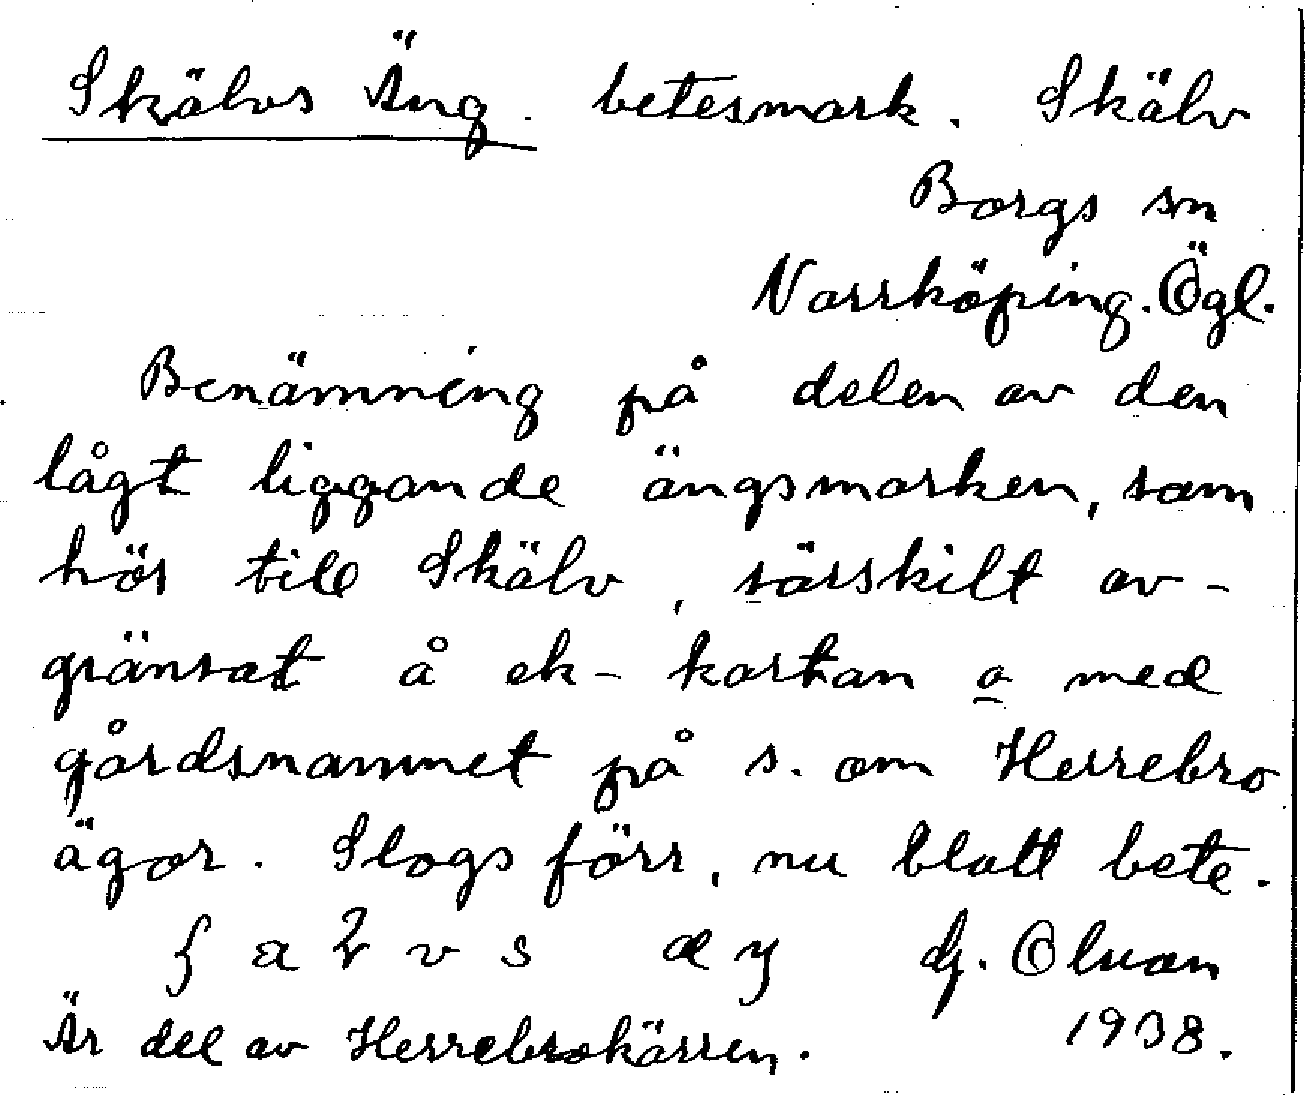 Skälvs Äng. betesmark. Skälv
Borgs sn
Norrköping. Ögl.
Benämning på delen av den
lågt liggande ängsmarken, som
hör till Skälv, särskilt av-
gränsat å ek-kartan o med
gårdsnamnet på s. om Herrebro
ägor. Slogs förr, nu blott bete.
1938.
Är del av Herrebrokärren.